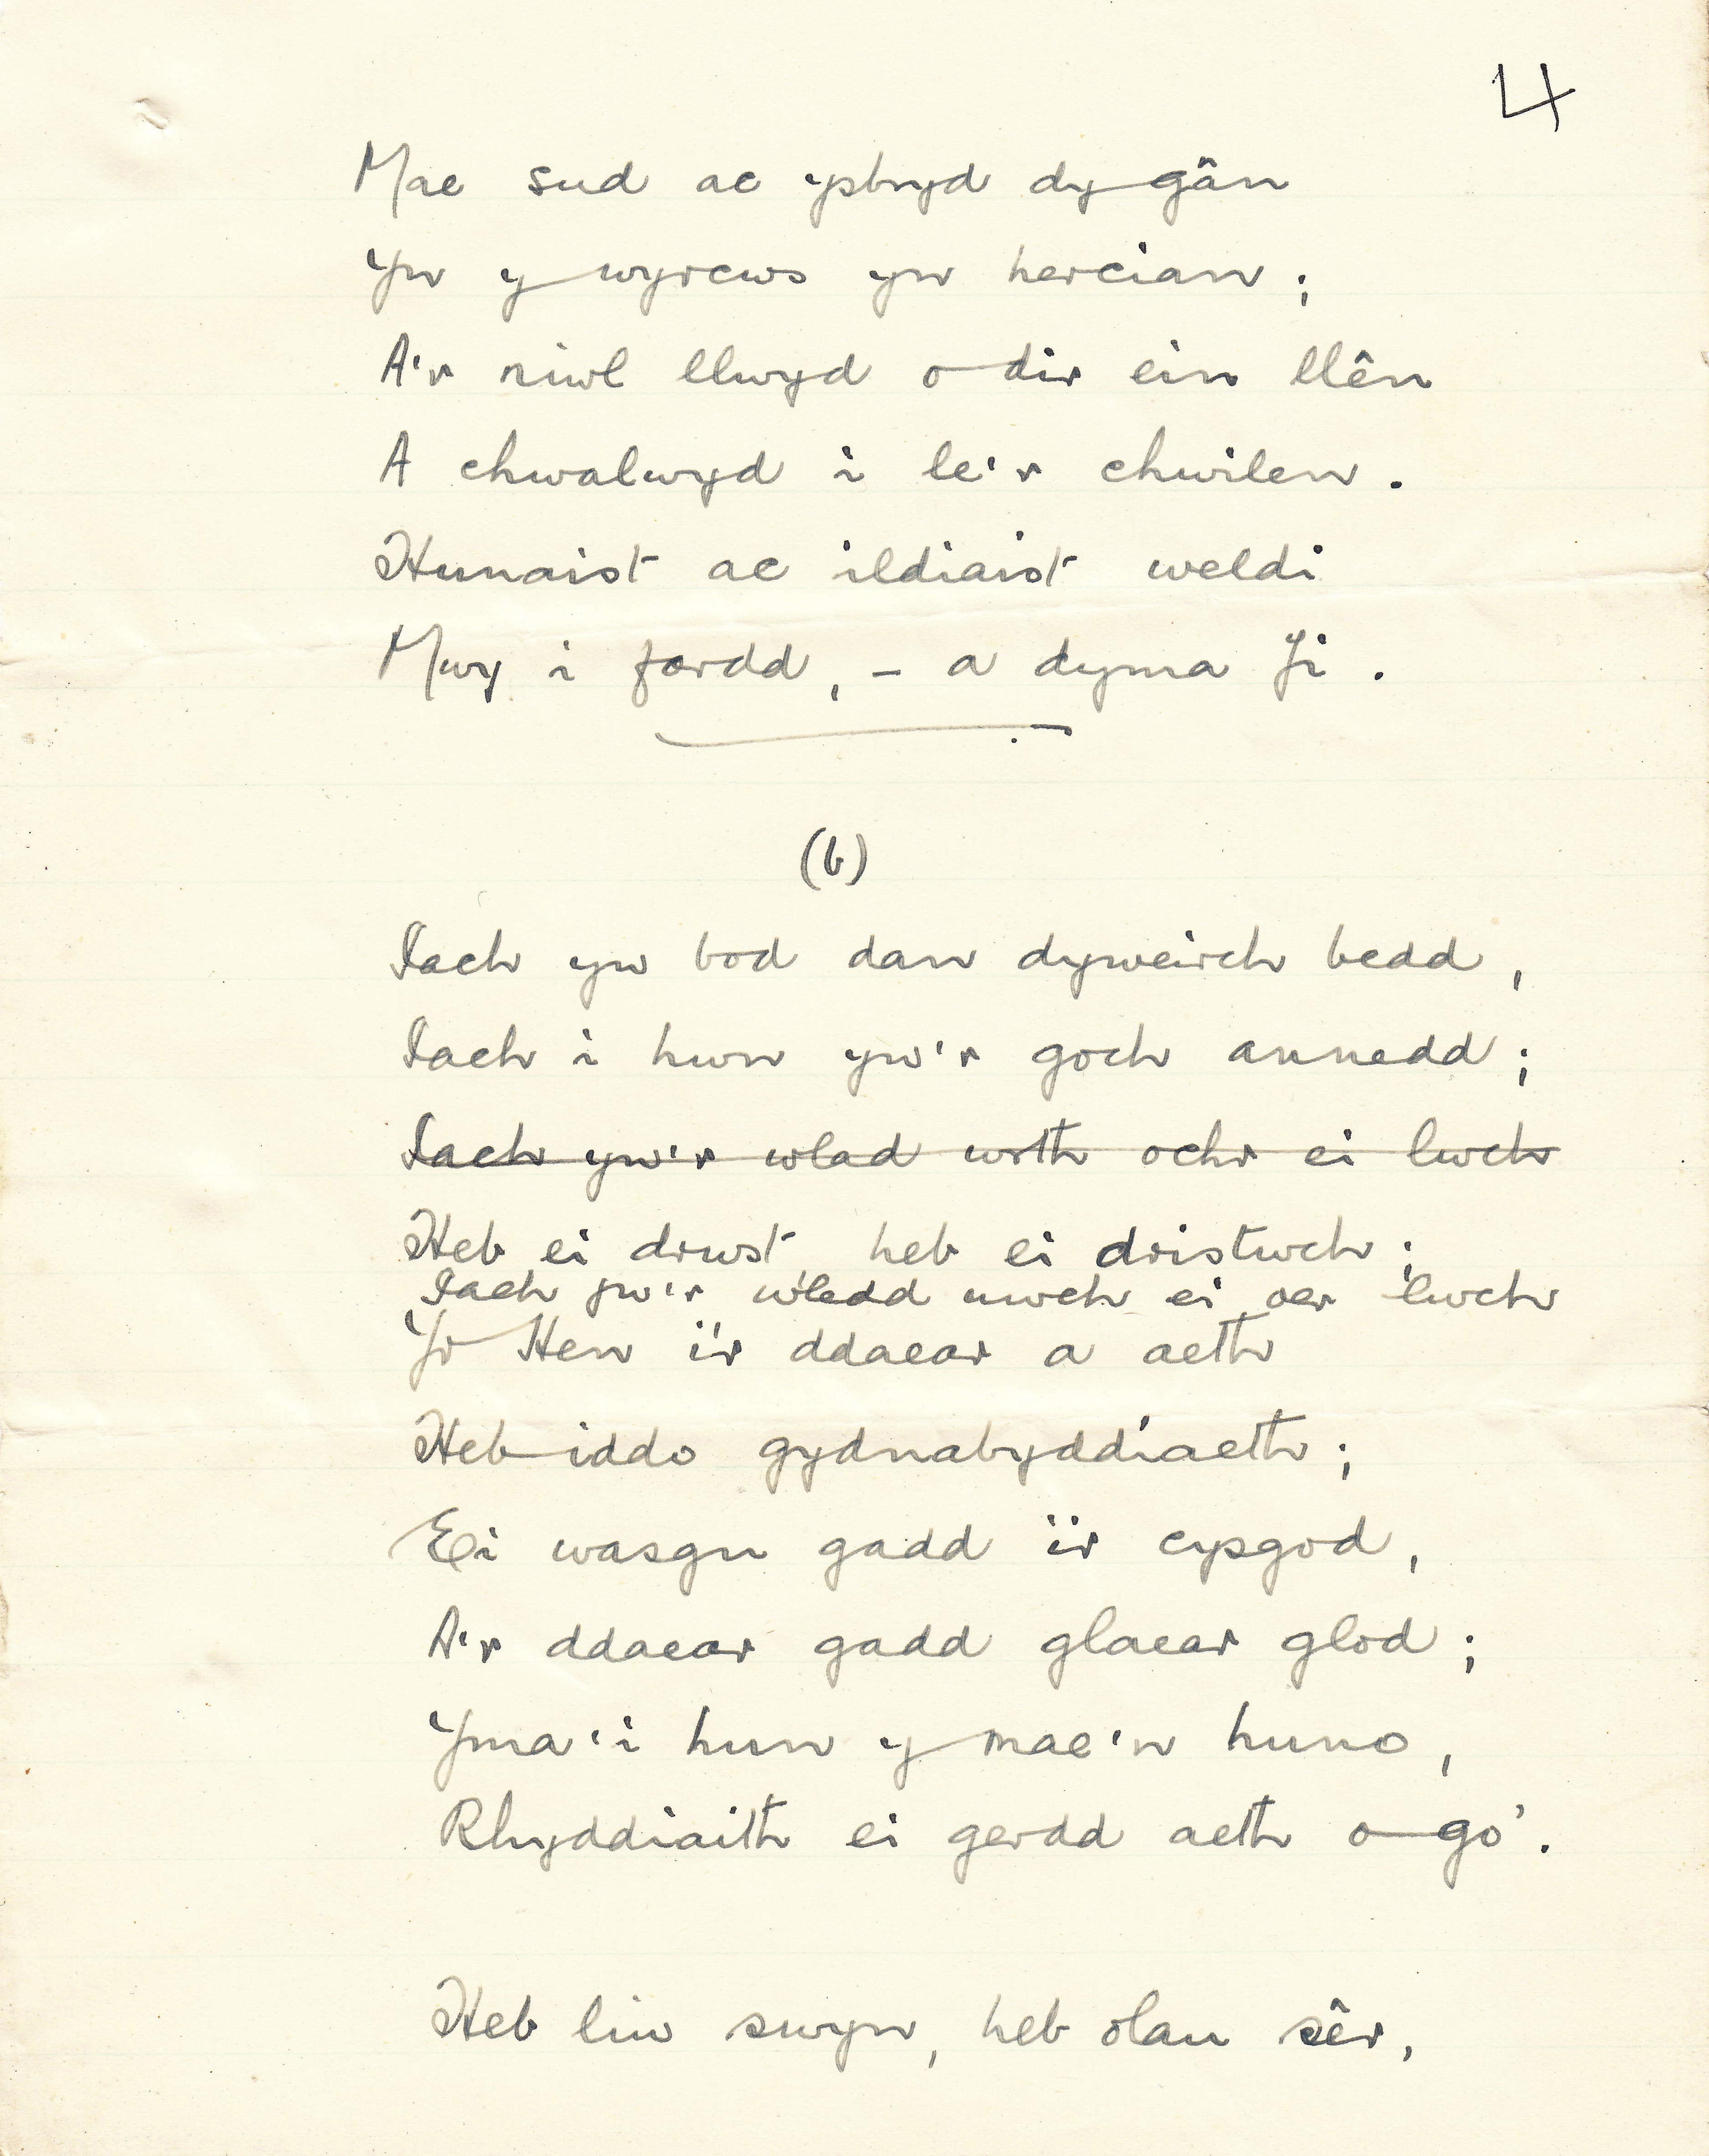 4
Mae sud ac ysbryd dy gân
Yn y wyrcws yn hercian;
A'r niwl llwyd o dir ein llên
A chwalwyd i le'r chwilen.
Hunaist ac ildiaist weldi
Mwy i fardd, - a dyma Fi.
(b)
Iach yw bod dan dyweirch bedd,
Iach i hwn yw'r goch annedd;
Iach yw'r wlad wrth ochr ei lwch
Heb ei drwst, heb ei dristwch;
Iach yw'r wledd uwch ei oer lwch
Yr Hen i'r ddaear a aeth
Heb iddo gydnabyddiaeth;
Ei wasgu gadd i'r cysgod,
A'r ddaear gadd glaear glod;
Yma'i hun y mae'n huno,
Rhyddiaith ei gerdd aeth o go'.
Heb liw swyn, heb olau sêr,